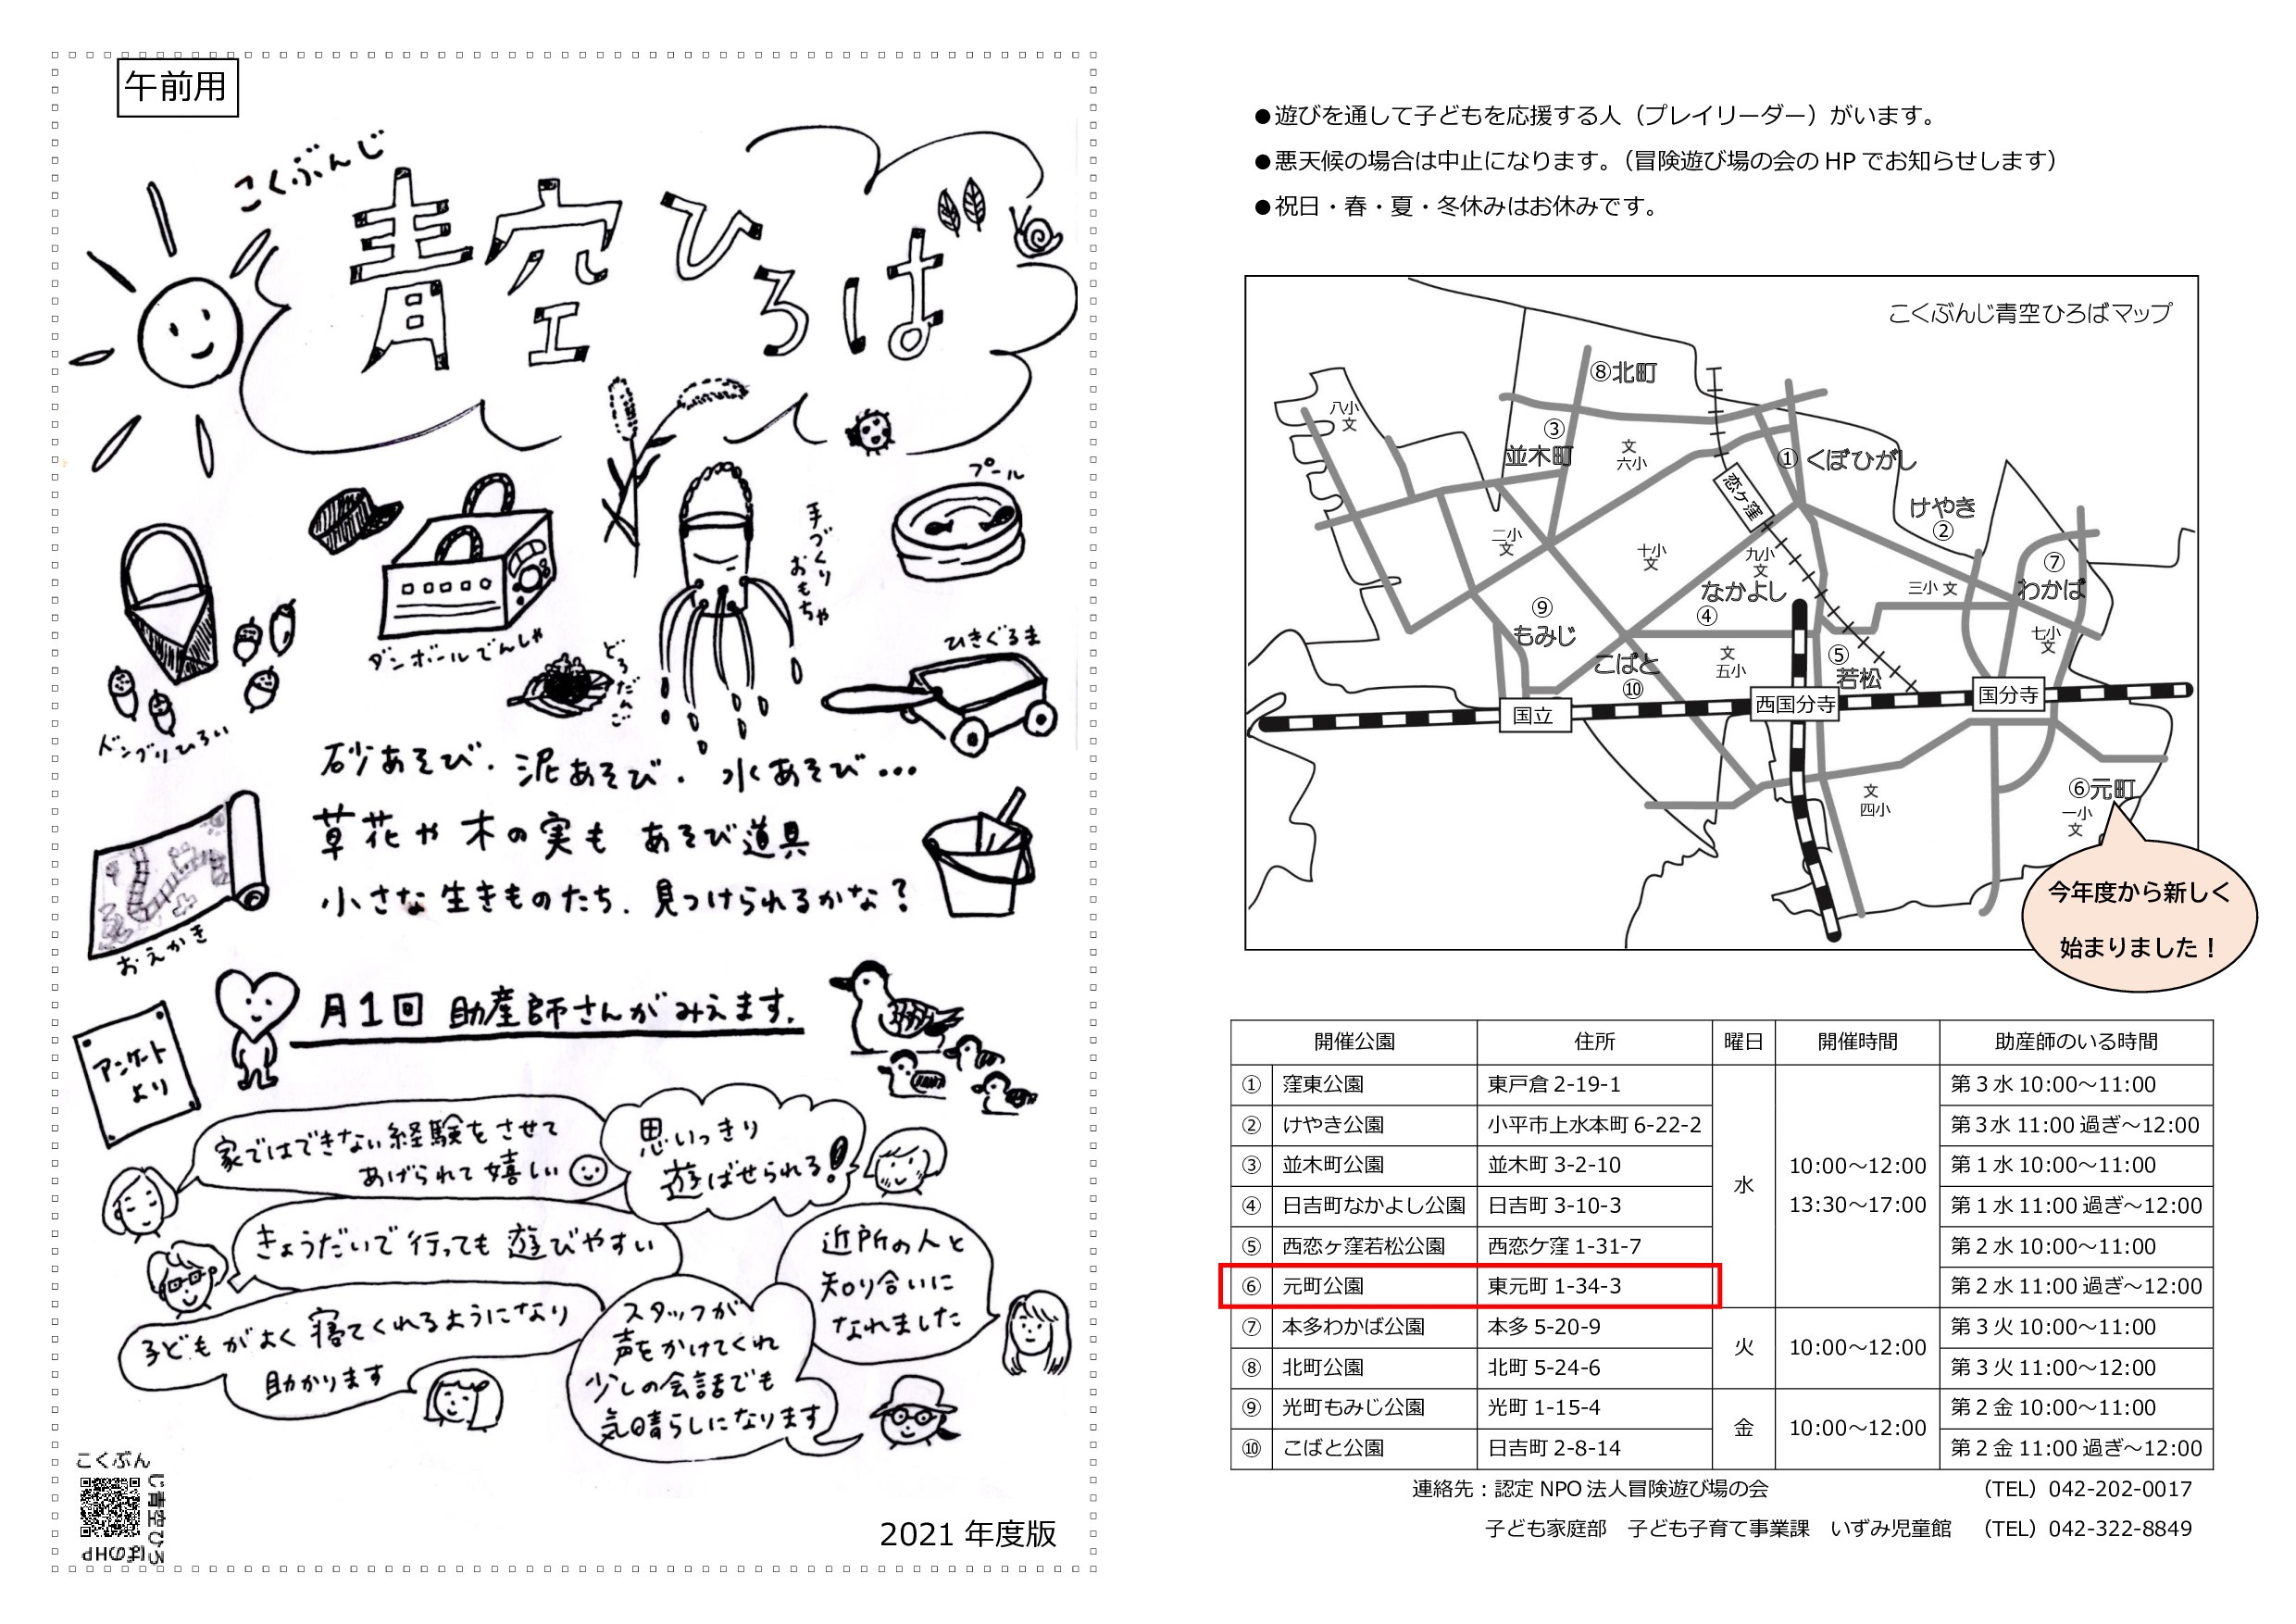 午前用
こくぶんじ
青空ひろば
プール
手づくりおもちゃ
ダンボールでんしゃ
どろだんご
ひきぐるま
ドングリひろい
砂あそび・泥あそび・水あそび…
草花や木の実も あそび道具
小さな生きものたち、見つけられるかな？
おえかき
月1回 助産師さんがみえます。
アンケート
より
家ではできない経験をさせて
あげられて嬉しい
思いっきり
遊ばせられる！
きょうだいで行っても遊びやすい
近所の人と
知り合いに
なれました
子どもがよく寝てくれるようになり
助かります
スタッフが
声をかけてくれ
少しの会話でも
気晴らしになります
こくぶんじ青空ひろばのHP
2021 年度版
●遊びを通して子どもを応援する人（プレイリーダー）がいます。
●悪天候の場合は中止になります。（冒険遊び場の会の HP でお知らせします）
●祝日・春・夏・冬休みはお休みです。
こくぶんじ青空ひろばマップ
⑧北町
八小
文
③
並木町
文
六小
①くぼひがし
恋ヶ窪
けやき
②
二小
文
十小
文
九小
文
⑦
わかば
三小 文
なかよし
④
⑨
もみじ
七小
文
こばと
⑩
文
五小
⑤
若松
国立
西国分寺
国分寺
文
四小
⑥元町
一小
文
今年度から新しく
始まりました！
開催公園 住所 曜日 開催時間 助産師のいる時間
① 窪東公園 東戸倉 2-19-1 第 3 水 10:00～11:00
② けやき公園 小平市上水本町 6-22-2 第 3 水 11:00 過ぎ～12:00
③ 並木町公園 並木町 3-2-10 水 10:00～12:00 第 1 水 10:00～11:00
④ 日吉町なかよし公園 日吉町 3-10-3 13:30～17:00 第 1 水 11:00 過ぎ～12:00
⑤ 西恋ヶ窪若松公園 西恋ケ窪 1-31-7 第 2 水 10:00～11:00
⑥ 元町公園 東元町 1-34-3 第 2 水 11:00 過ぎ～12:00
⑦ 本多わかば公園 本多 5-20-9 火 10:00～12:00 第 3 火 10:00～11:00
⑧ 北町公園 北町 5-24-6 第 3 火 11:00～12:00
⑨ 光町もみじ公園 光町 1-15-4 金 10:00～12:00 第 2 金 10:00～11:00
⑩ こばと公園 日吉町 2-8-14 第 2 金 11:00 過ぎ～12:00
連絡先：認定 NPO 法人冒険遊び場の会 （TEL）042-202-0017
子ども家庭部 子ども子育て事業課 いずみ児童館 （TEL）042-322-8849